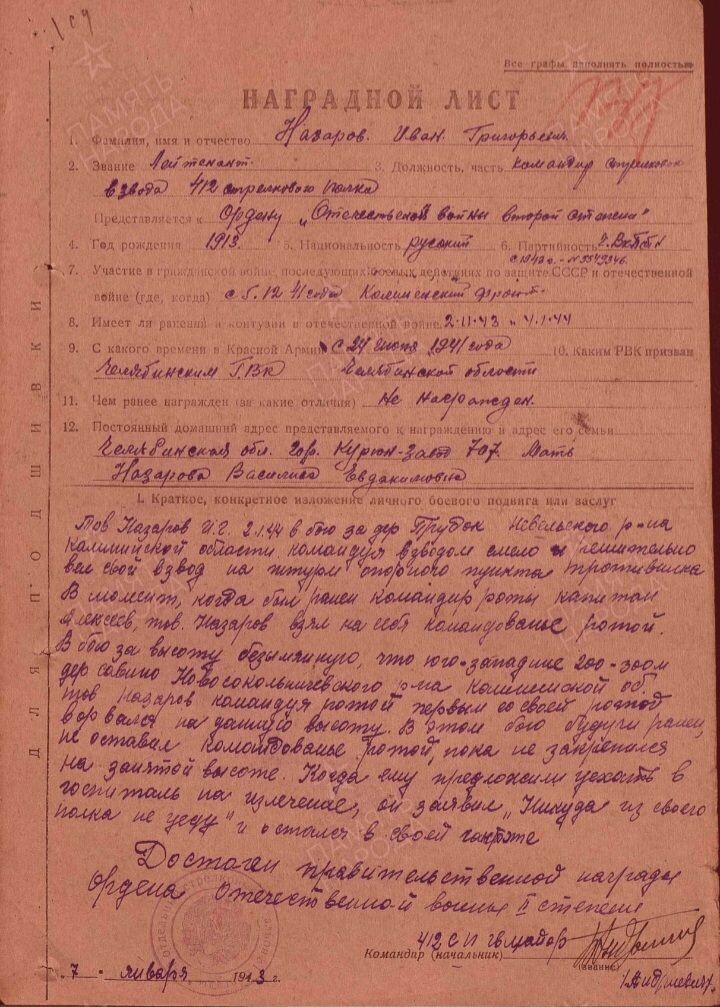 Все графы заполнять полностью
НАГРАДНОЙ ЛИСТ
1. Фамилия, имя и отчество Назаров Иван Григорьевич
2. Звание Лейтенант 3. Должность, часть командир стрелкового
взвода 412 стрелкового полка
Представляется к Ордену „Отечественной войны второй степени"
4. Год рождения 1913 5. Национальность русский 6. Партийность
с 1942г.
7. Участие в гражданской войне, последующих боевых действиях по защите СССР и отечественной
войне (где, когда) с 5.12 41 года Калининский фронт.
8. Имеет ли ранения и контузии в отечественной войне 2.11.43 и 4.1.44
9. С какого времени в Красной Армии с 27 июня 1941 года 10. Каким РВК призван
Челябинским ГВК Челябинской области
11. Чем ранее награжден (за какие отличия) Не награжден.
12. Постоянный домашний адрес представляемого к награждению и адрес его семьи
Челябинская обл. гор. 707. Мать
Назарова Василиса Евдакимовна
I. Краткое, конкретное изложение личного боевого подвига или заслуг
Тов Назаров И.Г. 2.1.44 в бою за дер Невельского р-на
Калининской области командуя взводом смело и решительно
вел свой взвод на штурм опорного пункта противника
В момент, когда был ранен командир роты капитан
Алексеев, тов. Назаров взял на себя командованье ротой.
В бою за высоту безымянную, что юго-западние 200-300м
дер Савино Новосокольничевского р-на Калининской об
тов Назаров командуя ротой первым со своей ротой
ворвался на данную высоту. В этом бою будучи ранен
не оставил командованье ротой, пока не закрепился
на занятой высоте. Когда ему предложили уехать в
госпиталь на излечение, он заявил „Никуда из своего
полка не уеду" и остался в своей
Достоен правительственной награды
Ордена Отечественной войны II степени
412 СП гв. майор
Командир (начальник)
(звание)
7 января 1943 г.
ДЛЯ ПОДШИВКИ
ПАМЯТЬ НАРОДА